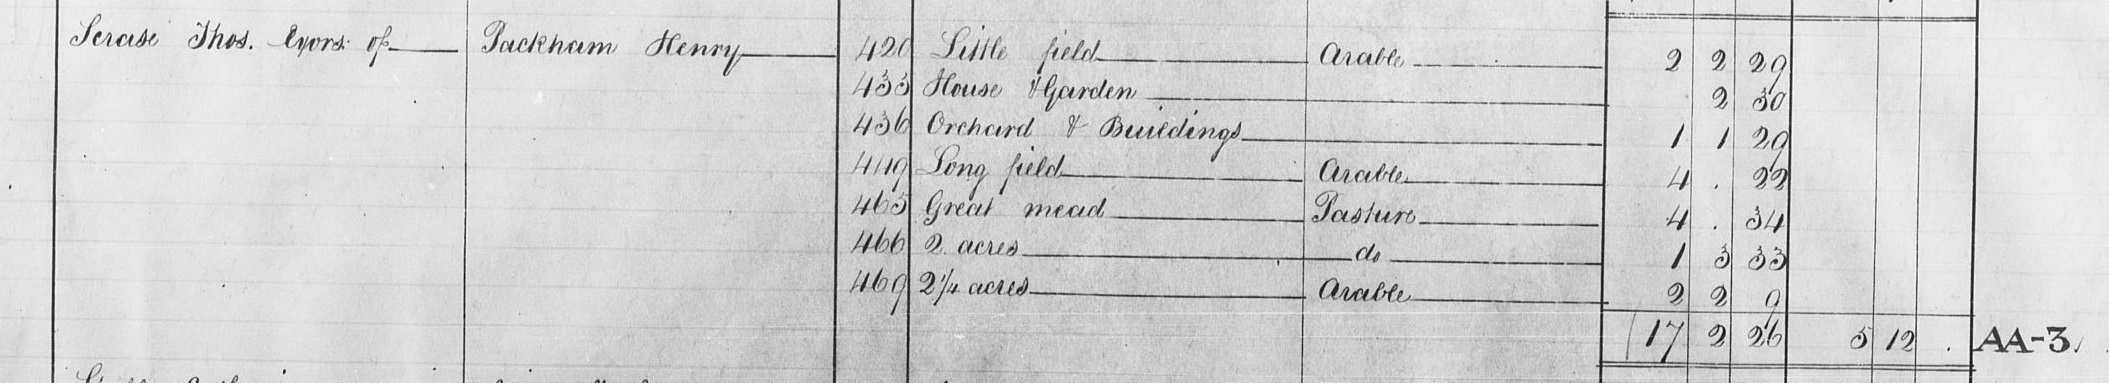 Scrase Thos. Exors. of Packham Henry 420 Little field Arable 2 2 29
433 House & Garden 2 30
436 Orchard & Buildings 1 1 29
449 Long field Arable 4 . 22
465 Great mead Pasture 4 . 34
466 2 acres do 1 3 33
469 2 1/4 acres Arable 2 2 9
17 2 26 5 12 . AA-3.